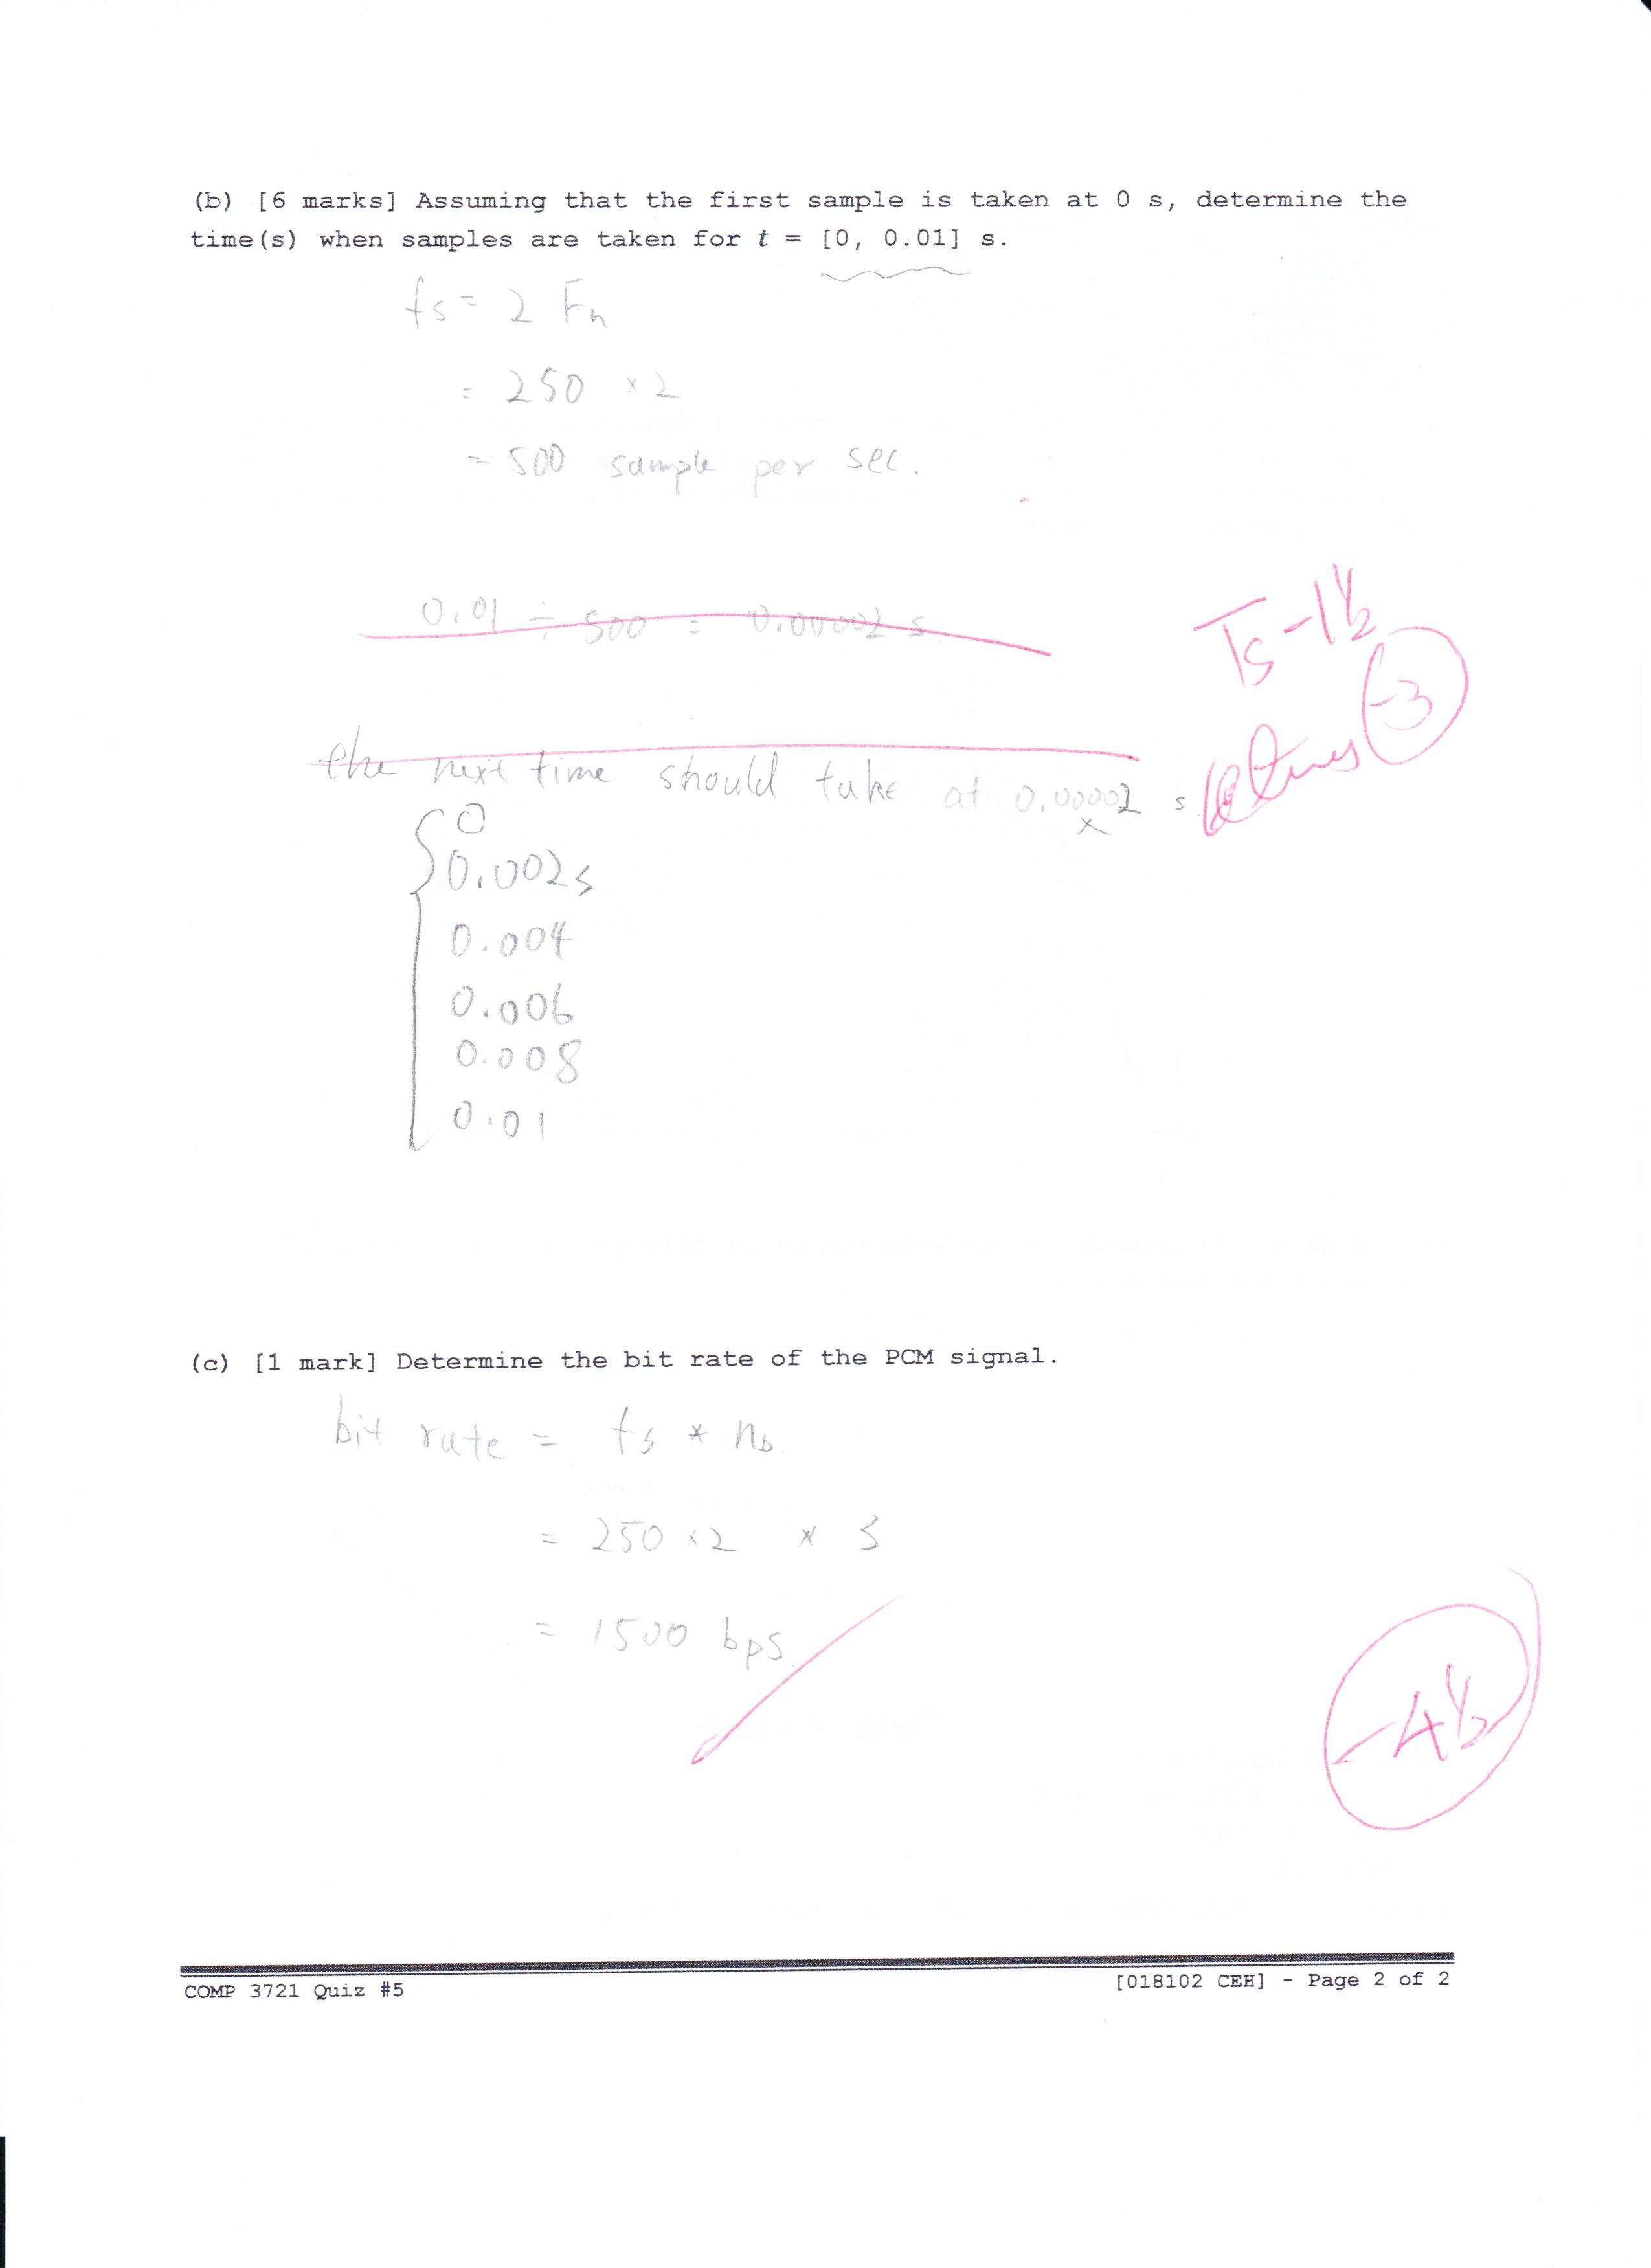 (b) [6 marks] Assuming that the first sample is taken at 0 s, determine the
time(s) when samples are taken for t = [0, 0.01] s.
fs = 2 Fn
= 250 × 2
= 500 sample per sec.
0.01 ÷ 500 = 0.00002 s
Ts -1½
-3
the next time should take at 0.00002 s
6 times
x
0
0.002s
0.004
0.006
0.008
0.01
(c) [1 mark] Determine the bit rate of the PCM signal.
bit rate = fs * nb
= 250 × 2 * 3
= 1500 bps
-4½
COMP 3721 Quiz #5
[018102 CEH] - Page 2 of 2